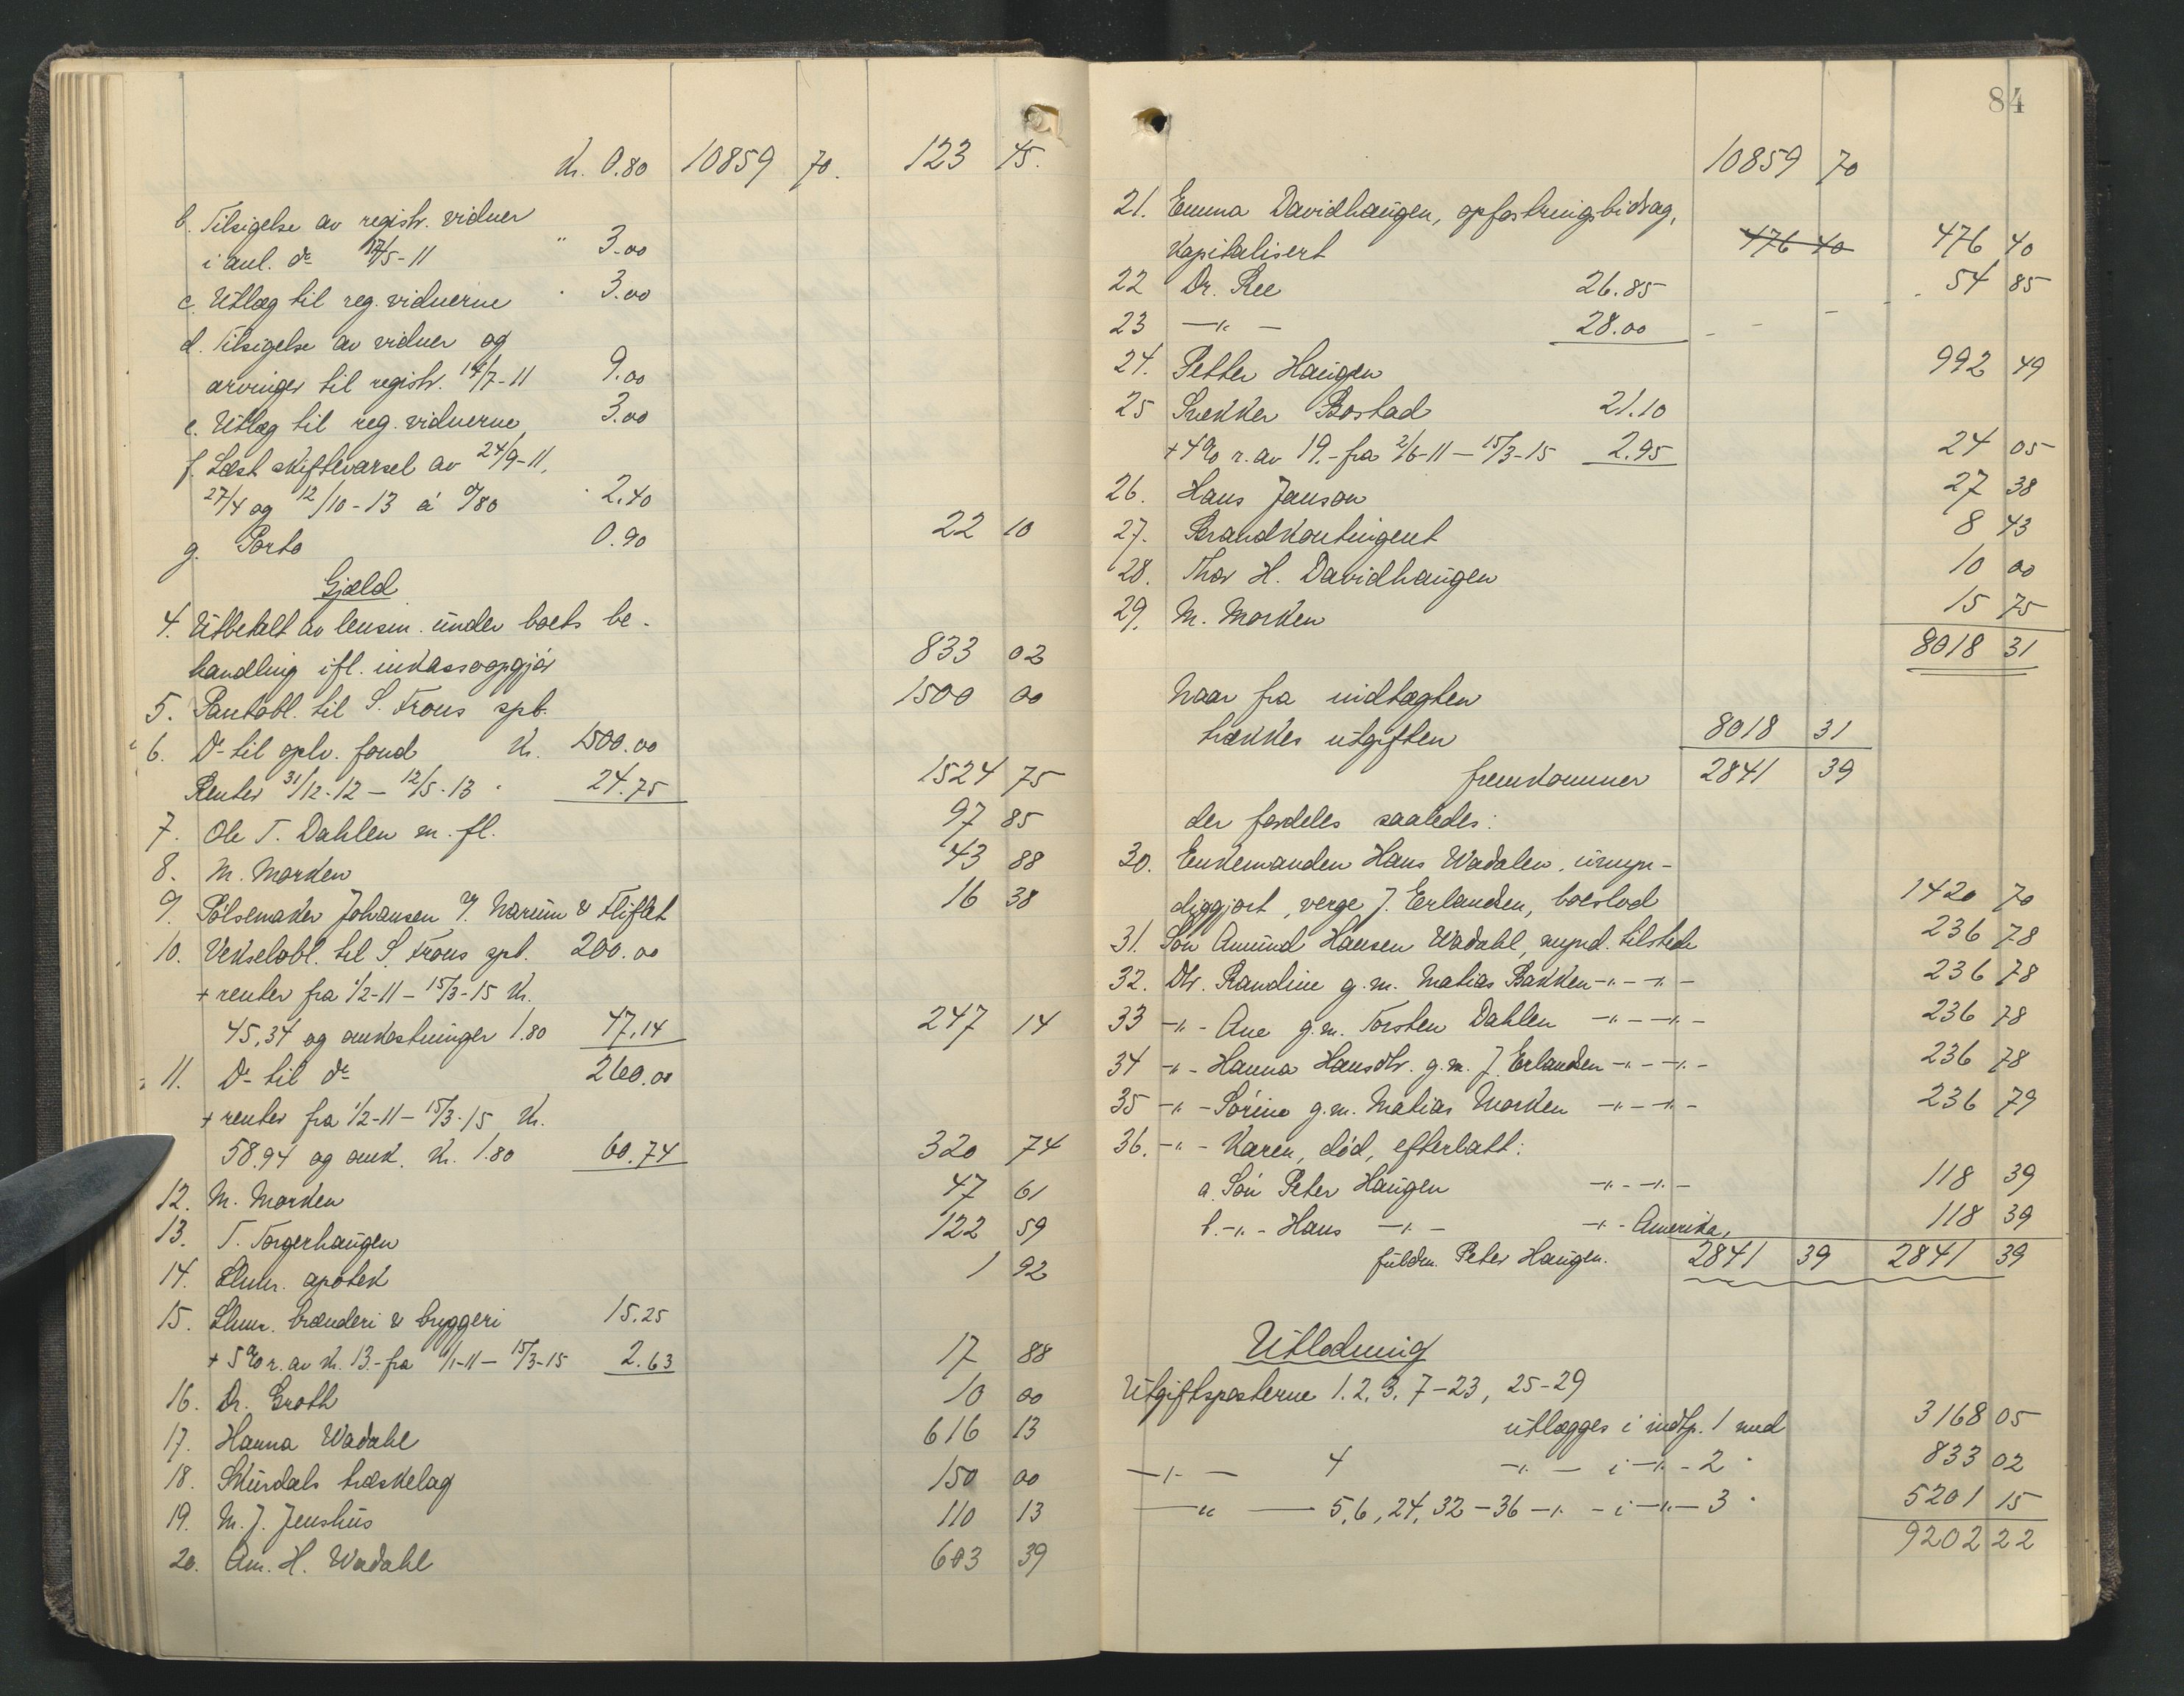 Kr. 0.80 10859 70. 123 45.
b. Tilsigelse av registr. vidner
i anl. do 17/5-11 " 3.00
c. Utlæg til reg. vidnerne " 3.00
d. Tilsigelse av vidner og
arvinger til registr. 14/7-11 9.00
e. Utlæg til reg. vidnerne 3.00
f. Læst skiftevarsel av 24/9-11,
27/4 og 12/10-13 á 0/80 " 2.40
g. Porto 0.90 22 10
Gjæld
4. Utbetalt av lensm. under boets be-
handling ifl. inkassoopgjør 833 02
5. Pantobl. til S. Frons spb. 1500 00
6. Do til oplv. fond Kr. 1500.00
Renter 31/12-12 – 12/5-13 " 24.75 1524 75
7. Ole T. Dahlen m. fl. 97 85
8. M. Morken 43 88
9. Pølsemaker Johansen v/ Narum & Fliflet 16 38
10. Vekselobl. til S. Frons spb. 200.00
+ renter fra 1/2-11 – 15/3-15 Kr.
45,34 og omkostninger 1.80 47.14 247 14
11. Do til do 260.00
+ renter fra 1/2-11 – 15/3-15 Kr.
58.94 og omk. Kr. 1.80 60.74 320 74
12. M. Morken 47 61
13. T. Torgerhaugen 122 59
14. Lhmr. apotek 1 92
15. Lhmr. brænderi & bryggeri 15.25
+ 5% r. av Kr. 13.- fra 1/1-11 – 15/3-15 2.63 17 88
16. Dr. Groth 10 00
17. Hanna Wadahl 616 13
18. Skurdals træskelag 150 00
19. M. J. Jenshus 110 13
20. Am. H. Wadahl 603 39
84
10859 70
21. Emma Davidhaugen, opfostringsbidrag,
kapitalisert 476 40 476 40
22 Dr. Ree 26.85 54 85
23 –"– 28.00
24. Petter Haugen 992 49
25 Snekker Bostad 21.10
+ 4% r. av 19.- fra 2/6-11 – 15/3-15 2.95 24 05
26. Hans Janson 27 38
27. Brandkontingent 8 43
28. Thor H. Davidhaugen 10 00
29. M. Morken 15 75
8018 31
Naar fra indtægten
trækkes utgiften 8018 31
fremkommer 2841 39
der fordeles saaledes:
30. Enkemanden Hans Wadalen, umyn-
diggjort, verge J. Erlanden, boeslod 1420 70
31. Søn Amund Hansen Wadahl, mynd. tilstede 236 78
32. Dtr. Randine g.m. Matias Bakken –"– –"– 236 78
33 –"– Ane g.m. Torsten Dahlen –"– –"– 236 78
34 –"– Hanna Hansdtr. g.m. J. Erlanden –"– –"– 236 78
35 –"– Sørine g.m. Matias Morken –"– –"– 236 79
36. –"– Karen, død, efterlatt:
a. Søn Peter Haugen –"– –"– 118 39
b. –"– Hans –"– –"– Amerika, 118 39
fuldm. Peter Haugen. 2841 39 2841 39
Utlodning
Utgiftsposterne 1. 2. 3. 7-23, 25-29
utlægges i indtp. 1 med 3168 05
–"– 4 –"– i –"– 2 " 833 02
–"– 5, 6, 24, 32-36 –"– i –"– 3 " 5201 15
9202 22